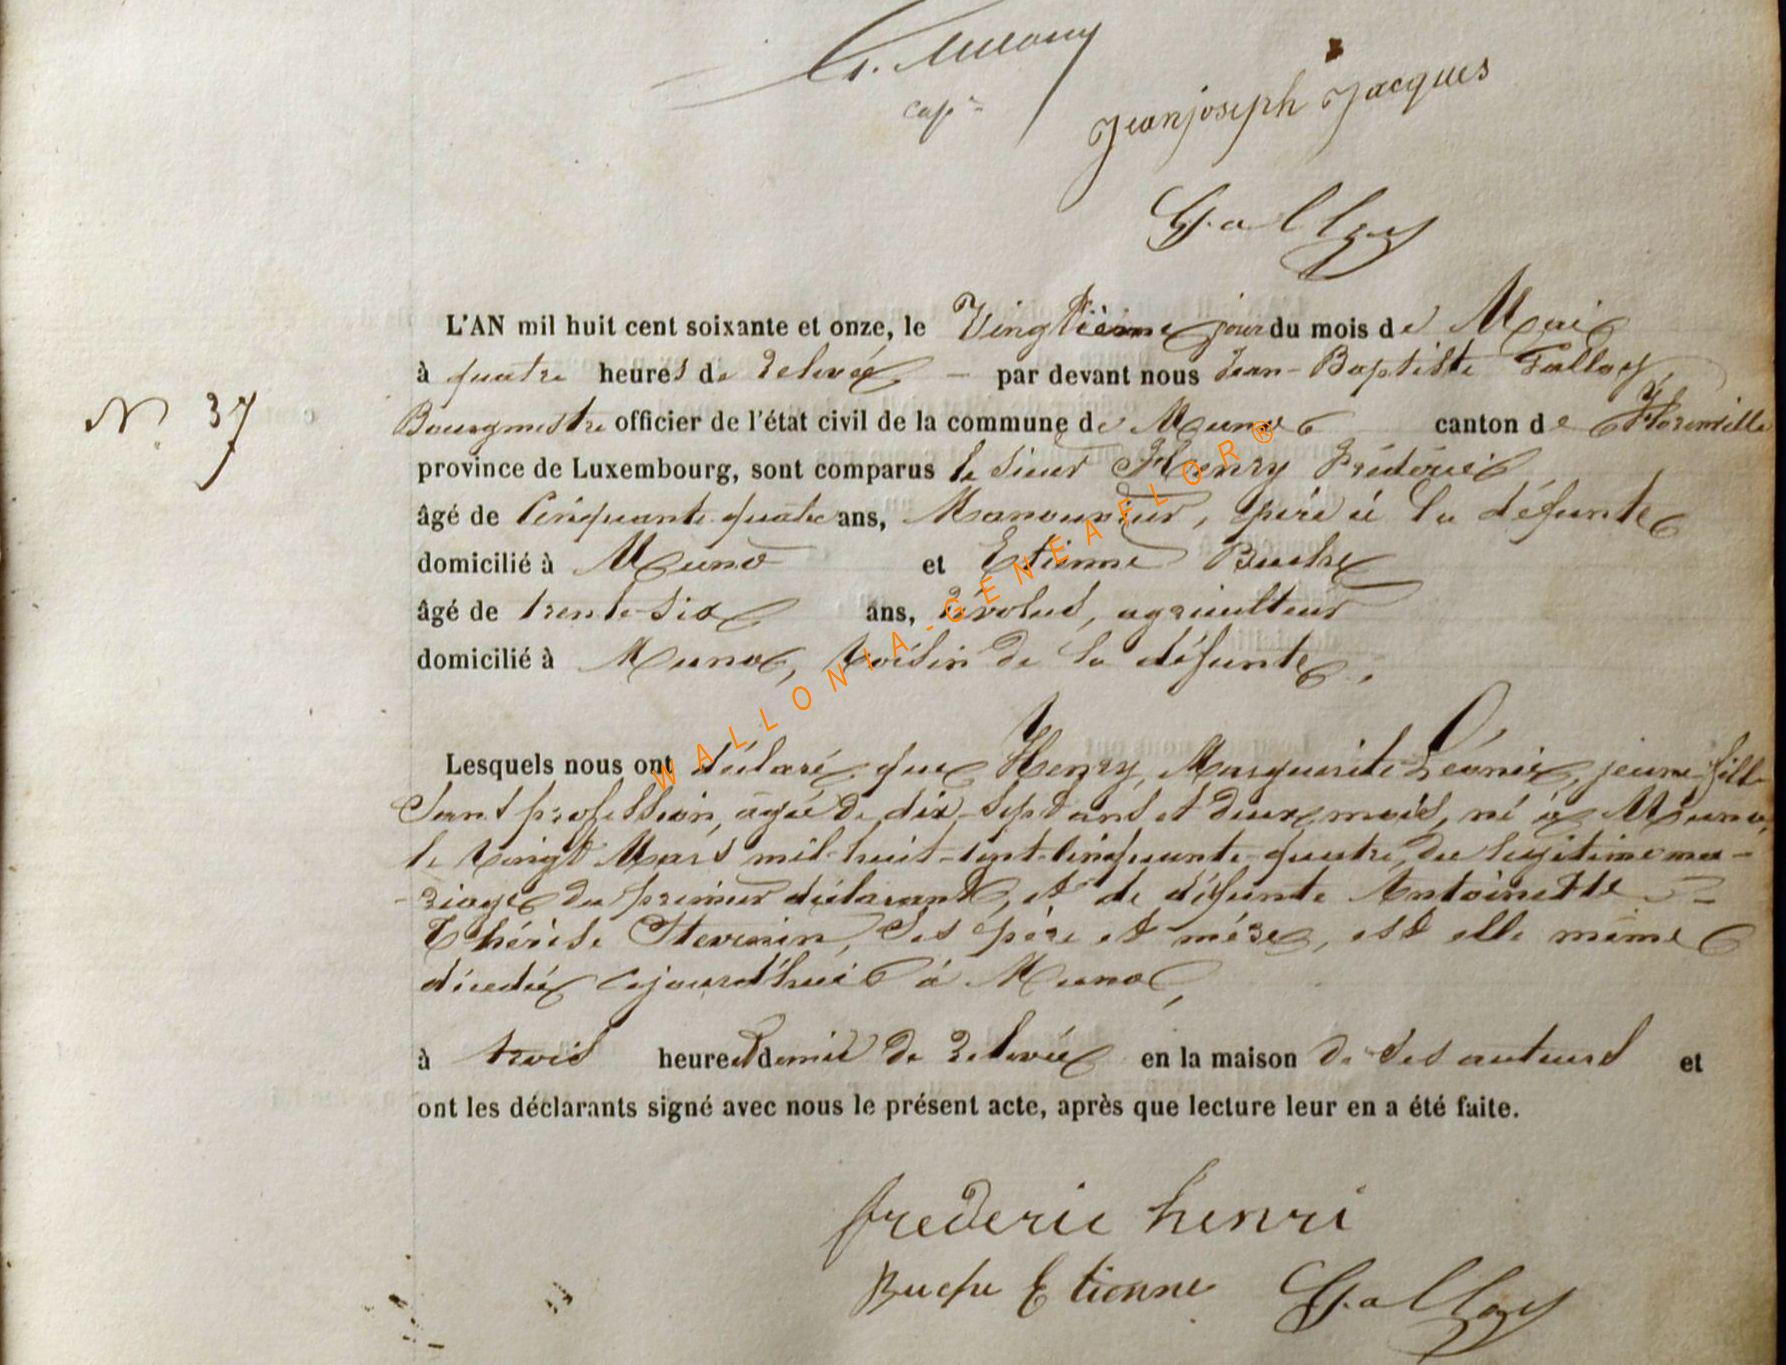 cap^e
Jeanjoseph Jacques
Galloy
L'AN mil huit cent soixante et onze, le Vingtième jour du mois de Mai
à quatre heures de relevée, — par devant nous Jean-Baptiste Galloy,
N°. 37
Bourgmestre officier de l'état civil de la commune de Muno canton de Florenville
province de Luxembourg, sont comparus le sieur Henry Fréderic
âgé de Cinquante-quatre ans, Manouvrier, père à la défunte
domicilié à Muno et Etienne Buche
âgé de trente-six ans, révolus, agriculteur
domicilié à Muno, voisin de la défunte,
Lesquels nous ont déclaré que Henry, Marguerite Léonie, jeune fille
sans profession, âgée de dix-sept ans et deux mois, né à Muno,
le vingt Mars mil-huit-cent-cinquante-quatre, du légitime ma-
-riage du premier déclarant, et de défunte Antoinette
Thérèse Stevenin, ses père et mère, est elle même
décedée cejourd'hui à Muno,
à trois heures et demie de relevée en la maison de ses auteurs et
ont les déclarants signé avec nous le présent acte, après que lecture leur en a été faite.
frederic henri
Buche Etienne Galloy
WALLONIA-GENEAFLOR®